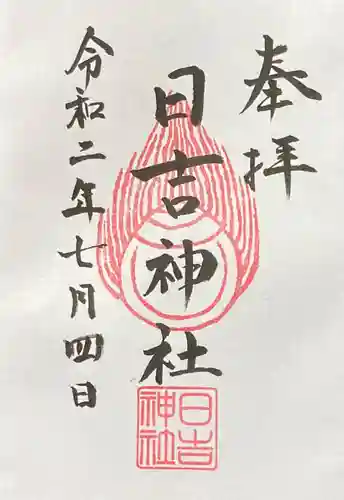 奉拝
日吉神社
令和二年七月四日
日吉
神社